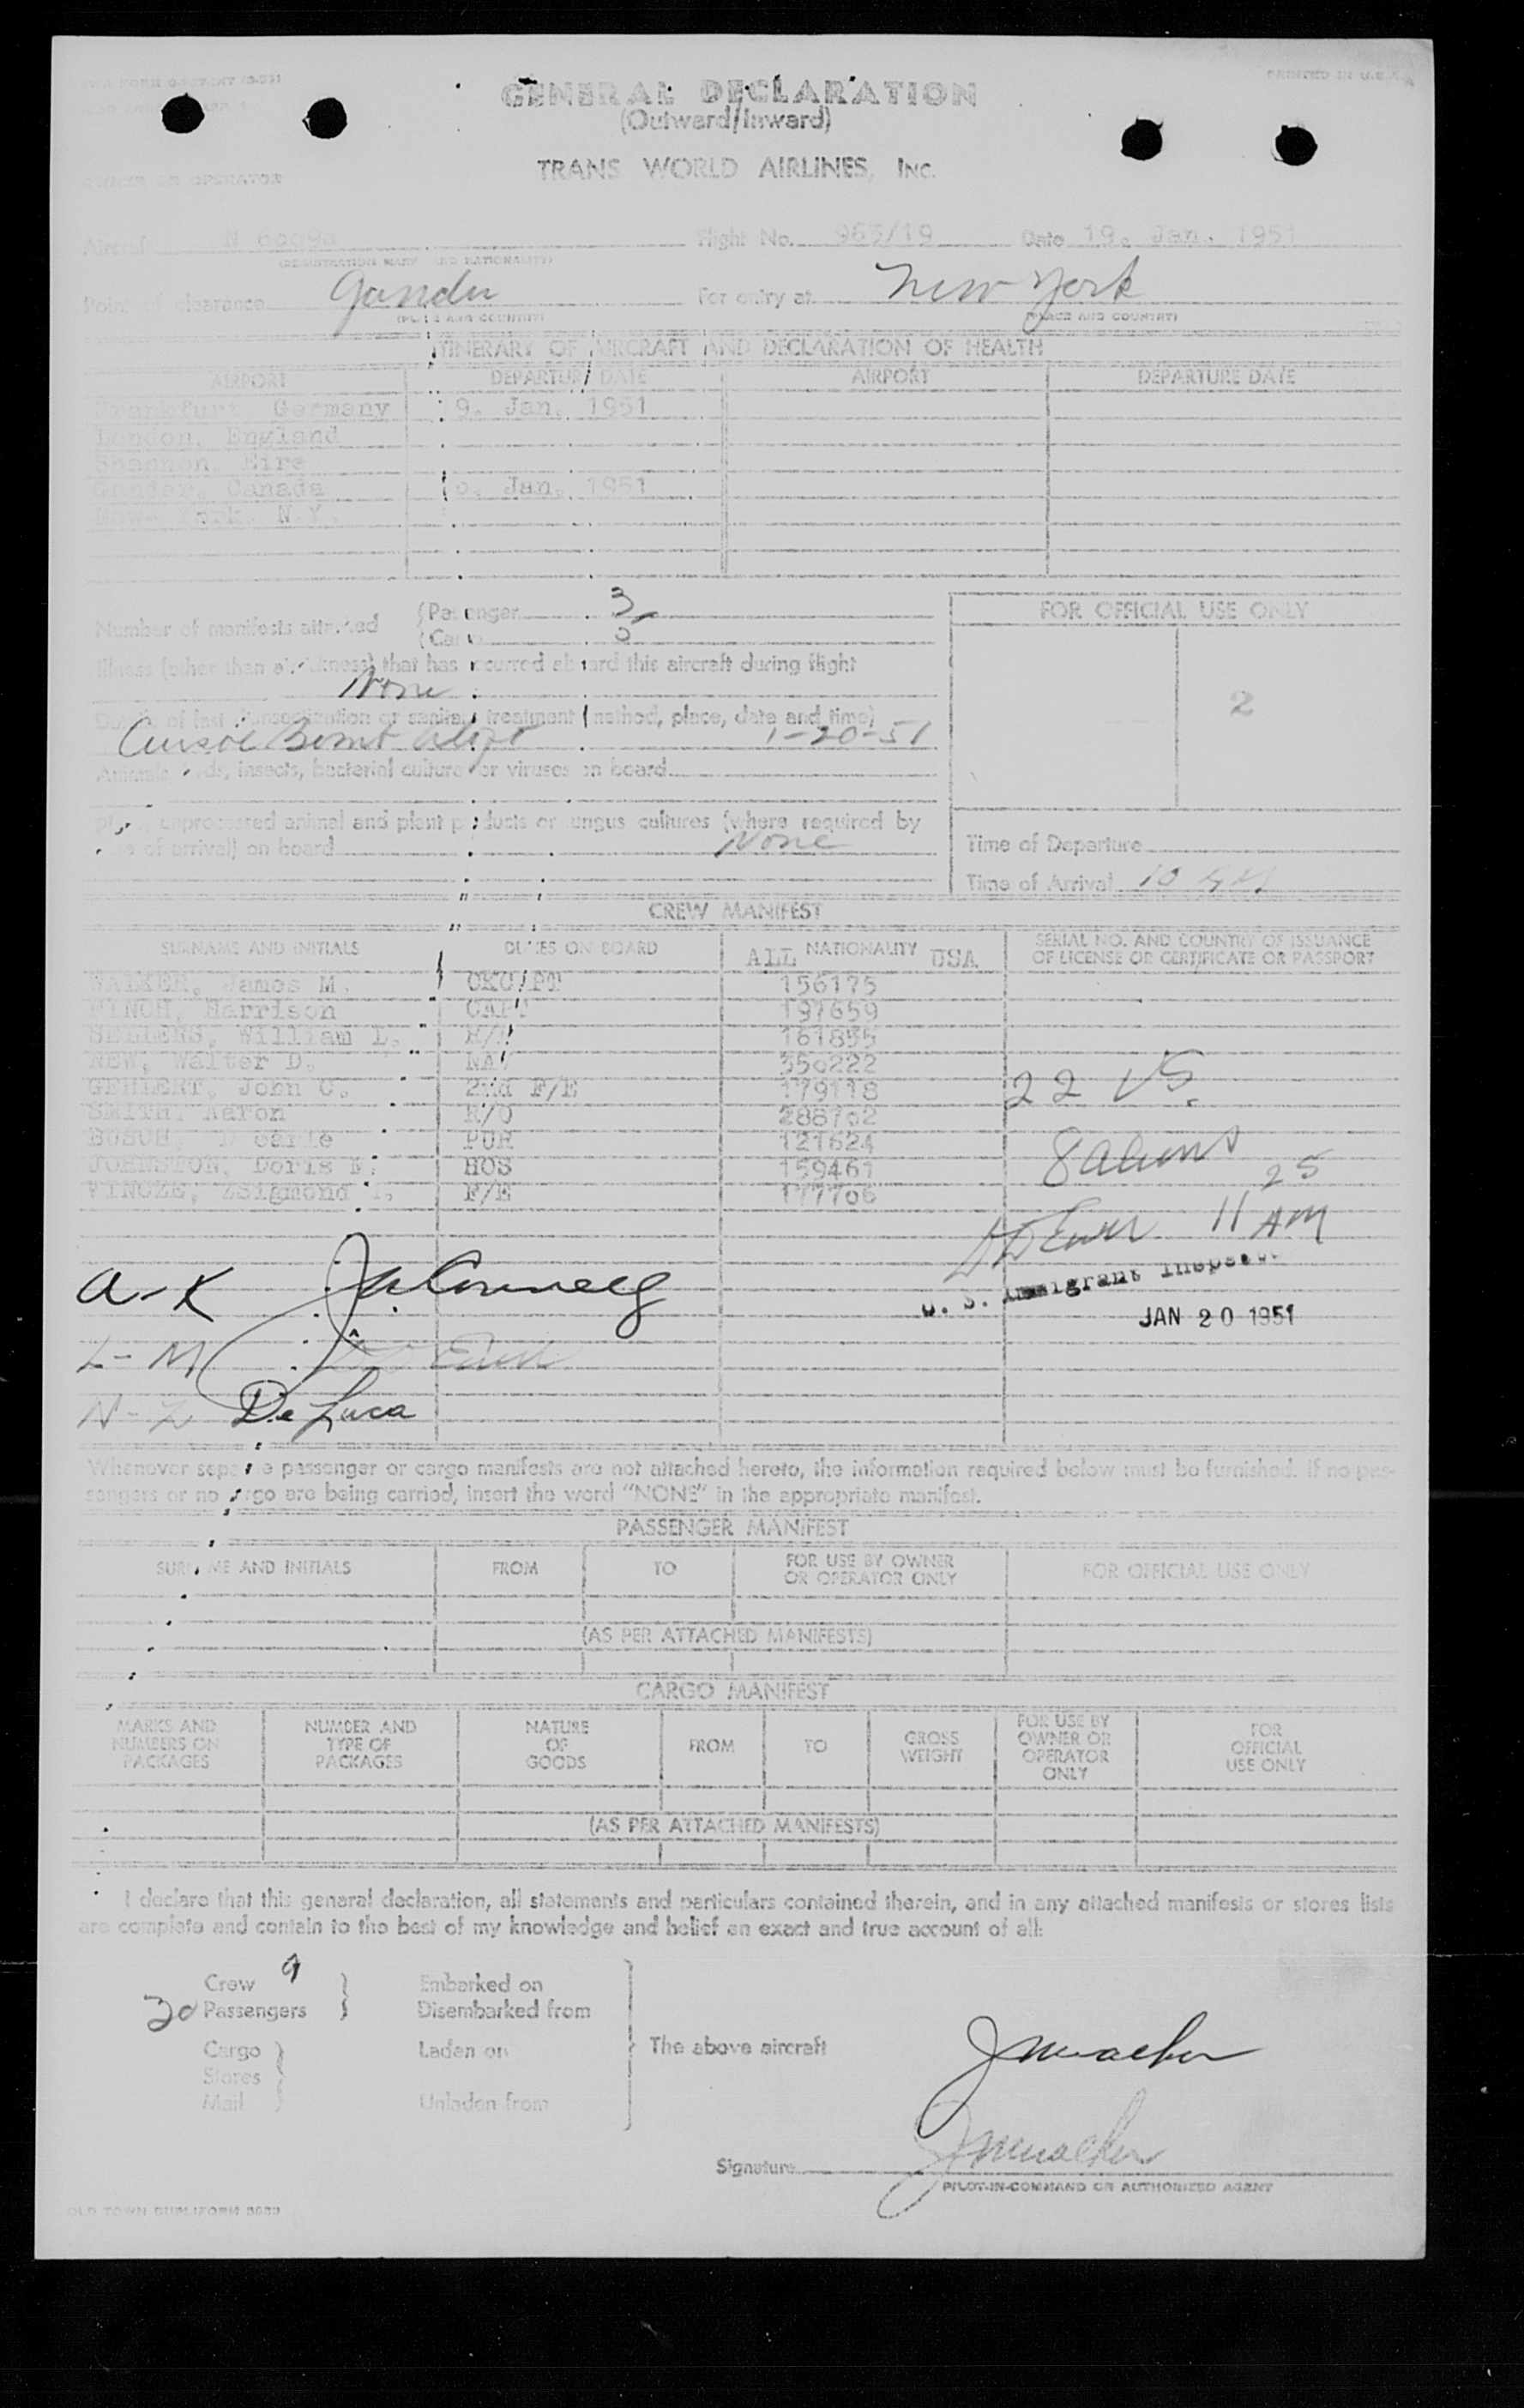 PRINTED IN U.S.A.
GENERAL DECLARATION
(Outward/Inward)
TRANS WORLD AIRLINES, INC.
OWNER OR OPERATOR
Aircraft N Flight No. 963/19 Date 19. Jan. 1951
(REGISTRATION MARK AND NATIONALITY)
Point of clearance Gander For entry at New York
(PLACE AND COUNTRY) (PLACE AND COUNTRY)
ITINERARY OF AIRCRAFT AND DECLARATION OF HEALTH
AIRPORT DEPARTURE DATE AIRPORT DEPARTURE DATE
Frankfurt, Germany 9. Jan. 1951
London, England
Shannon, Eire
Gander, Canada o. Jan. 1951
New York, N.Y.
Number of manifests attached (Passenger 3
(Cargo 5
FOR OFFICIAL USE ONLY
2
Illness (other than airsickness) that has occurred aboard this aircraft during flight
None
Details of last disinsectization or sanitary treatment (method, place, date and time)
Bomb 1-20-51
Animals, birds, insects, bacterial cultures or viruses on board
unprocessed animal and plant products or fungus cultures (where required by
of arrival) on board None
Time of Departure
Time of Arrival 10
CREW MANIFEST
SURNAME AND INITIALS DUTIES ON BOARD ALL NATIONALITY USA SERIAL NO. AND COUNTRY OF ISSUANCE
OF LICENSE OR CERTIFICATE OR PASSPORT
WALKER, James M. CKC/PT 156175
FINCH, Harrison CAPT 197659
SELLERS, William L. 161855
NEW, Walter D. NAV 350222
GEHLERT, John C. 2nd F/E 179118 22 US.
SMITH, Aaron R/O 288702
PUR 121624
JOHNSTON, Doris HOS 159461 8 aliens
VINCZE, Zsigmond F/E 177706 25
11 AM
U. S. Immigrant Inspector
JAN 20 1951
A-K
L-M
N-Z De Luca
Whenever separate passenger or cargo manifests are not attached hereto, the information required below must be furnished. If no pas-
sengers or no cargo are being carried, insert the word "NONE" in the appropriate manifest.
PASSENGER MANIFEST
SURNAME AND INITIALS FROM TO FOR USE BY OWNER
OR OPERATOR ONLY FOR OFFICIAL USE ONLY
(AS PER ATTACHED MANIFESTS)
CARGO MANIFEST
MARKS AND
NUMBERS ON
PACKAGES NUMBER AND
TYPE OF
PACKAGES NATURE
OF
GOODS FROM TO GROSS
WEIGHT FOR USE BY
OWNER OR
OPERATOR
ONLY FOR
OFFICIAL
USE ONLY
(AS PER ATTACHED MANIFESTS)
I declare that this general declaration, all statements and particulars contained therein, and in any attached manifests or stores lists
are complete and contain to the best of my knowledge and belief an exact and true account of all:
Crew 9 Embarked on
30 Passengers Disembarked from
Cargo Laden on The above aircraft
Stores
Mail Unladen from
Signature
PILOT-IN-COMMAND OR AUTHORIZED AGENT
OLD TOWN DUPLIFORM